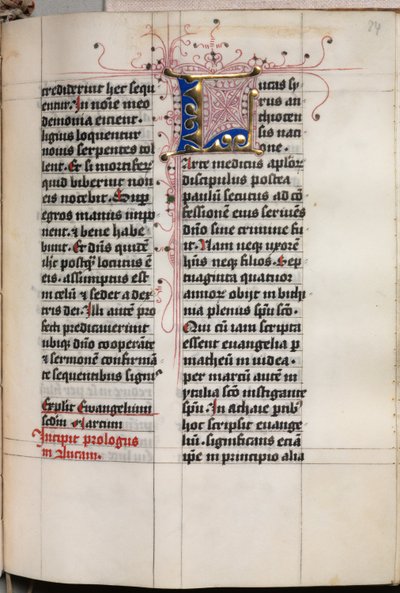 crediderint hec sequ
entur. In noīe meo
demonia eicient.
liguis loquentur
nouis serpentes tol
lent. Et si mortiferū
quid biberint non
eis nocebit. Sup
egros manus impo
nent. ⁊ bene habe
bunt. Et dn̄s quidē
ih̄c postq̄ locutus ē
eis. assumptus est
in celū ⁊ sedet a dex
tris dei. Illi autē pro
fecti predicauerunt
ubiq; dn̄o cooperāte
⁊ sermonē confirmā
te sequentibus signis
Explit Ewangelium
scdm Marcum
Incipit prologus
in Lucam.
Lucas sy
rus an
thiocen
sis nati
one.
Arte medicus apl̄oꝝ
discipulus postea
paulū secutus ad cō
fessionē eius seruiēs
dn̄o sine crimine fu
it. Nam neq; uxorē
hn̄s neq; filios. Sep
tuaginta quatuor
annoꝝ obijt in bithi
nia plenus spū sc̄o.
Qui cū iam scripta
essent euangelia p
matheū in iudea.
per marcū autē in
ytalia sc̄o instigante
spū. In achaie ptib;
hoc scripsit euange
liū. significans eciā
ip̄e in principio alia
84